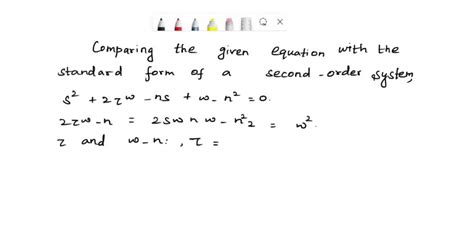 Comparing the given equation with the
standard form of a second-order system,
s² + 2τw-ns + w-n² = 0.
2τw-n = 2swnw-n²2 = w².
τ and w-n:, τ =